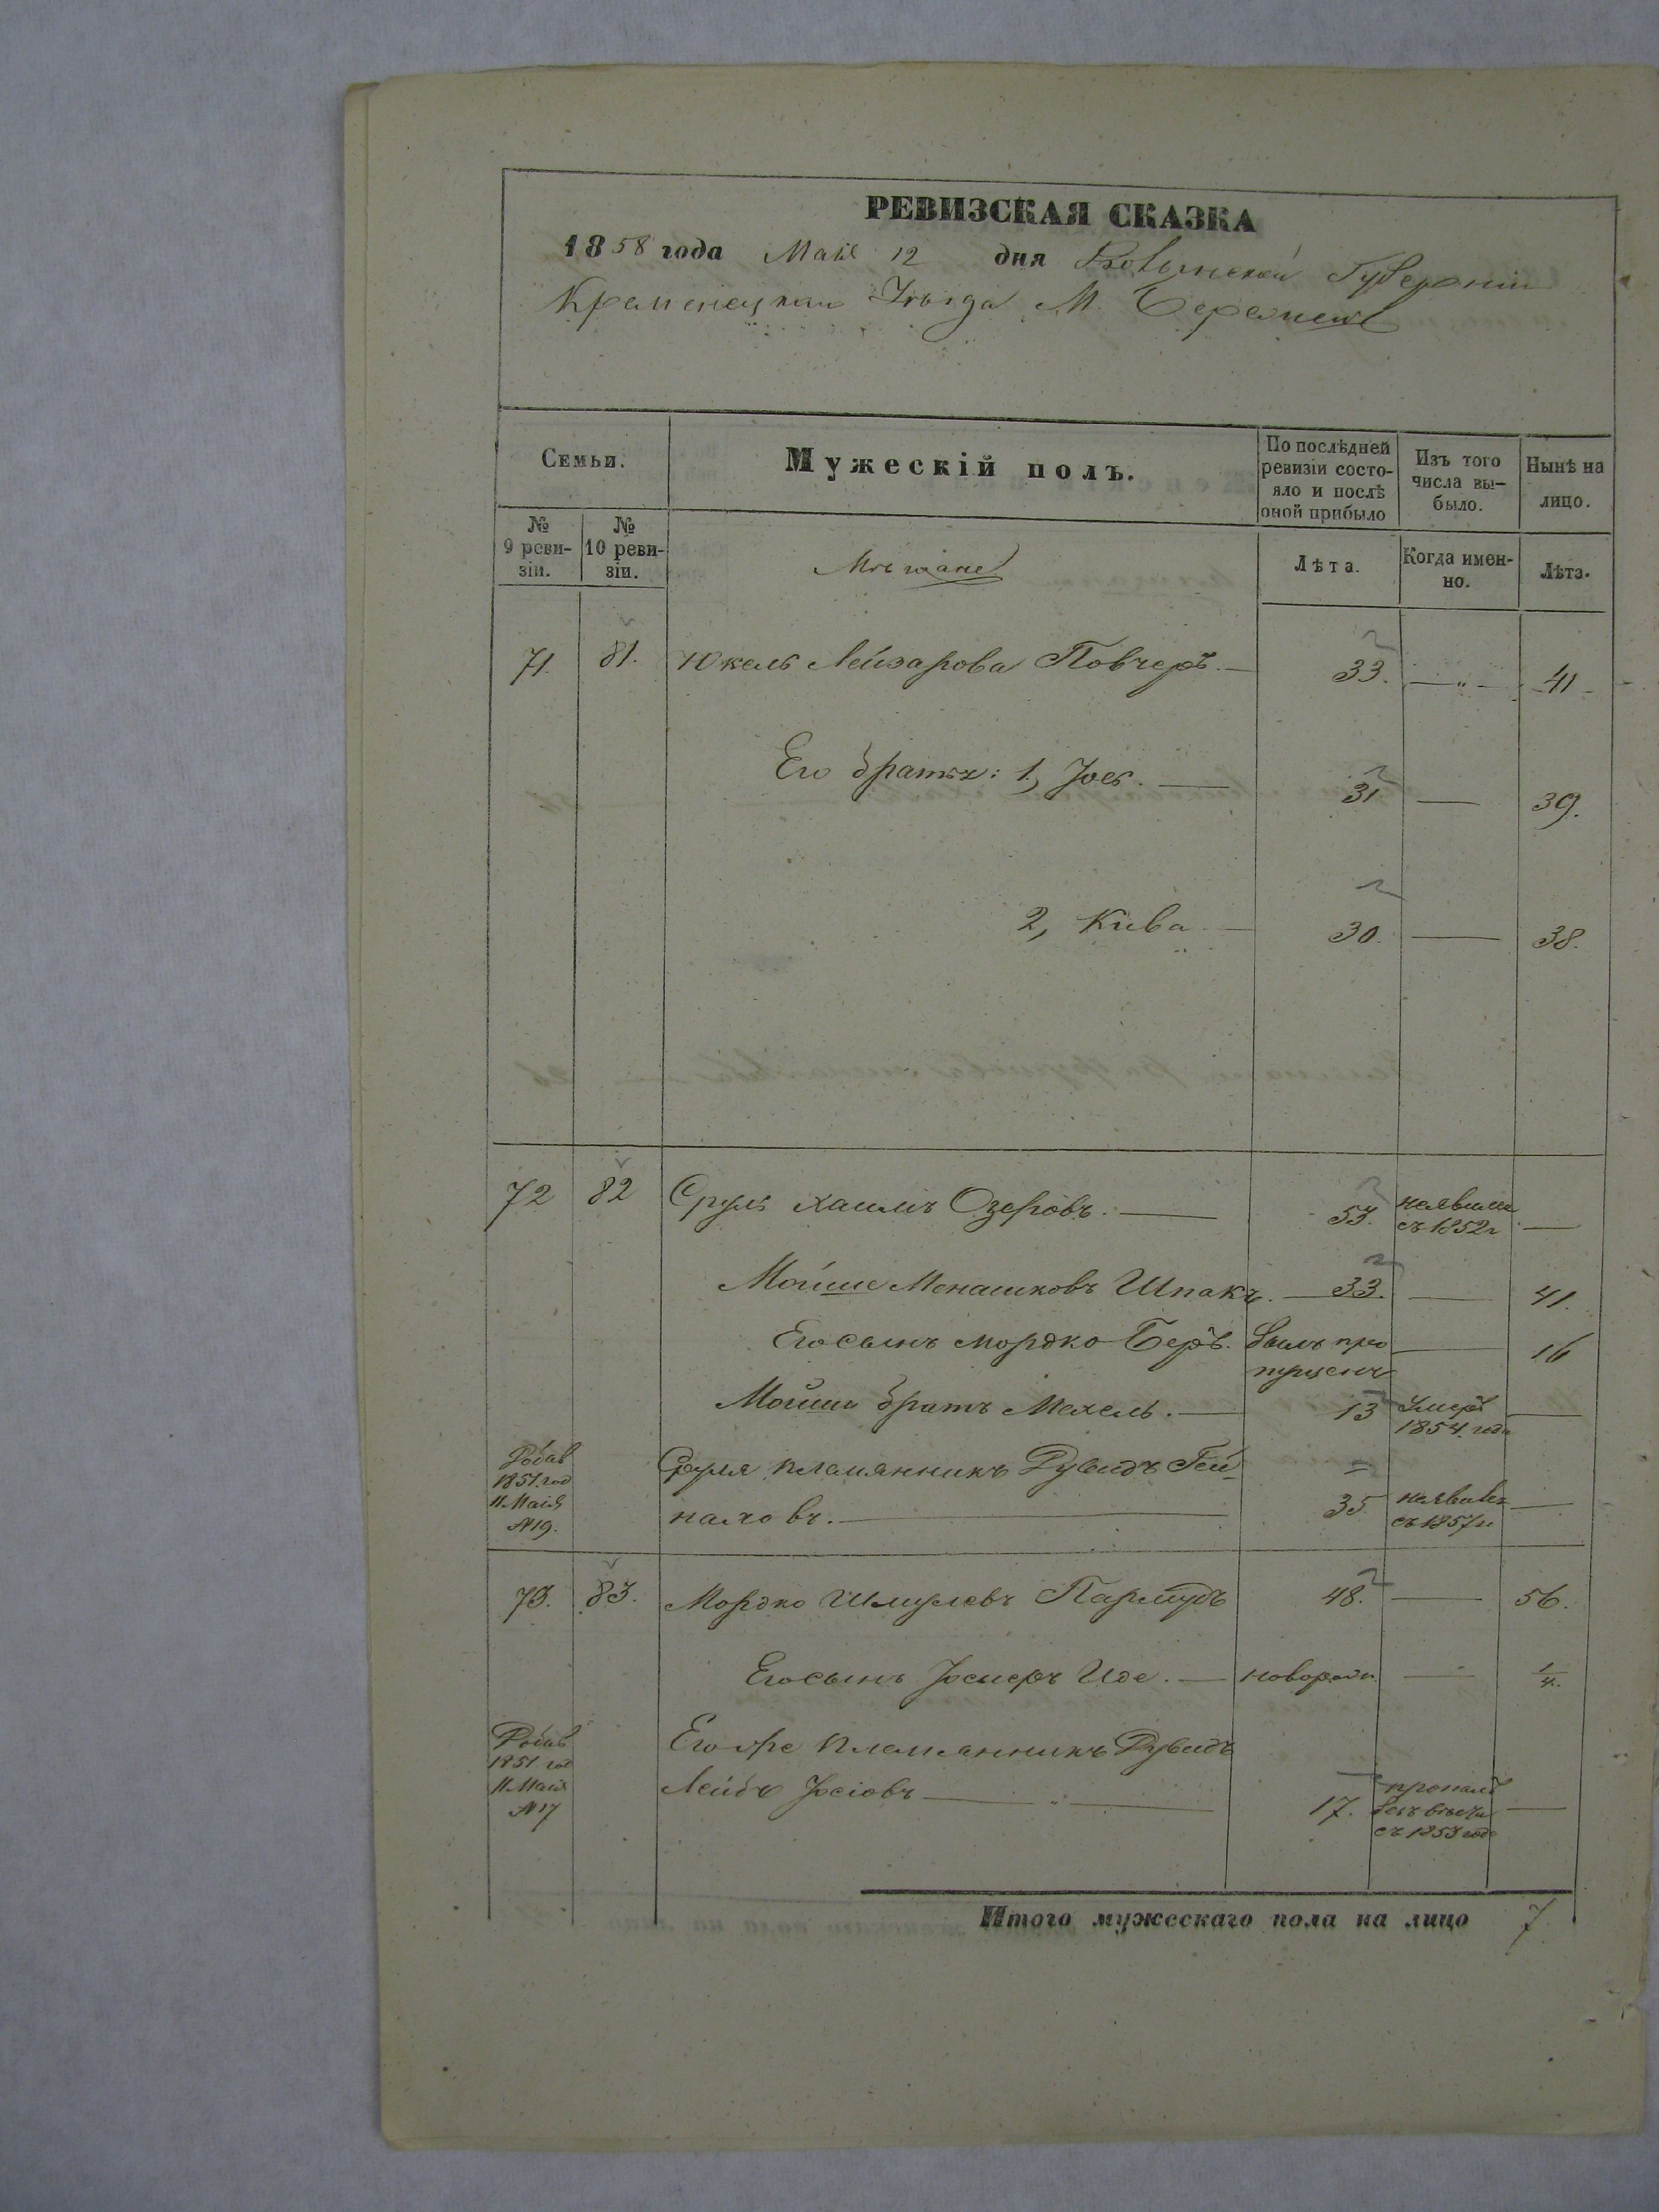 РЕВИЗСКАЯ СКАЗКА
1858 года Маія 12 дня Волынской Губерніи
Кременецкаго Уѣзда М. Бережець
Семьи.
Мужескій полъ.
По послѣдней ревизіи состояло и послѣ оной прибыло
Изъ того числа выбыло.
Нынѣ на лицо.
№ 9 ревизіи.
№ 10 ревизіи.
Мѣщане
Лѣта.
Когда именно.
Лѣта.
71. 81. Юкель Лейзарова Повчеръ. — 33. — „ — 41
Его братья: 1, Іось. — 31 — 39.
2, Кива — 30. — 38.
72 82 Сруль Хаимъ Озеровъ. — 53. неявился съ 1852 г —
Мойше Менашковъ Шпакъ. — 33. — 41.
Его сынъ Мордко Беръ. былъ пропущенъ — 16
Мойши братъ Мехель. — 13 Умеръ 1854. года —
1851. год 11. Маія № 19.
Сруля племянникъ Дувидъ Гейнаховъ. — 35 неявился съ 1857 г —
73. 83. Мордко Шмулевъ Пармудъ 48. — 56.
Его сынъ Іосмеръ Иде. — новорожд. — 1/4.
1851 год 11. Маія № 17
Его же племянникъ Дувидъ
Лейбъ Іосіовъ — „ — 17. пропалъ безъ вѣсти съ 1853 года —
Итого мужескаго пола на лицо 7